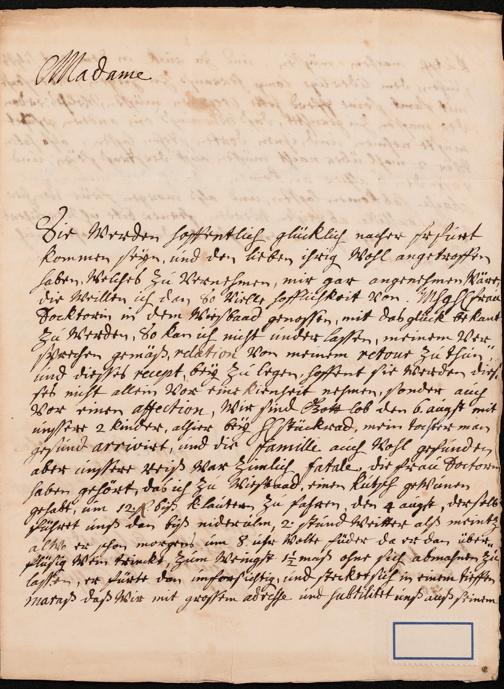 Madame
Sie Werden hoffentlich glücklich nacher
kommen seyn, und den lieben ihrig Wohl angetroffen
haben, Welches zu Vernehmen, mir gar angenehmen Wäre,
die Weillen ich den so Vielle hoffligkeit von Frau
Docktorin in dem Wesbaad genossen, mit das glück bekant
zu Werden, So kan ich nicht underlassen, meinem Ver
sprechen gemäß, relation Von meinem retour zu thun,
und diesses recept, beÿ zu legen, hoffent sie Werden dies
ses nicht allein Vor eine nehmen, sonder auch
Vor einen affection, Wir sind Gott lob den 6 augst mit
unsere 2 kinder, alhier beÿ H Stückrad, mein tochter man
gesund arrivirt, und die famille auch Wohl gefunden,
aber unssere reiß War zimlich fatale, die frau Doctorin
haben gehört, das ich zu Wesbaad, einen kutsch gewunen
gehabt, um 12 biß zu fahren, den 4 augst, derselb
führet unß den biß nider 2 stund Weitter alß meintz
alWo er schon morgens um 8 uhr Wolte füder da er den über
flüssig Wein trincke, zum Wenigst 1½ maß ohne sich abmahnen zu
lassen, er fürte den unforsichtig, und steckte sich in einem tieffen
maraß daß Wir mit grossem adresse und subtilitet unß auß seinem